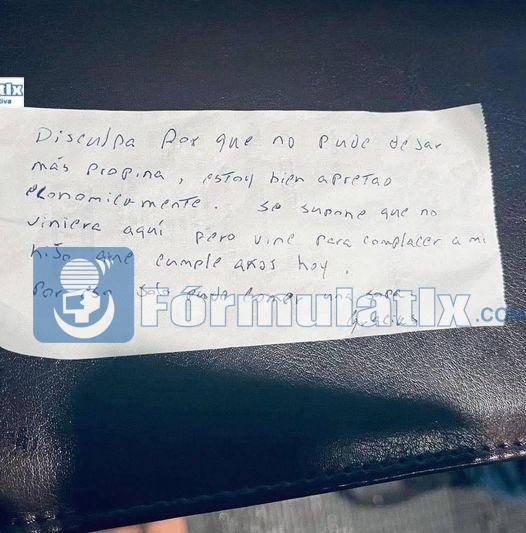 tIx
tiva
Disculpa por que no pude dejar
más propina, estoy bien apretao
economicamente. Se supone que no
viniera aquí pero vine para complacer a mi
hijo que cumple años hoy.
Por eso solo pude comer una sopa
Gracias
FórmulatIx.com